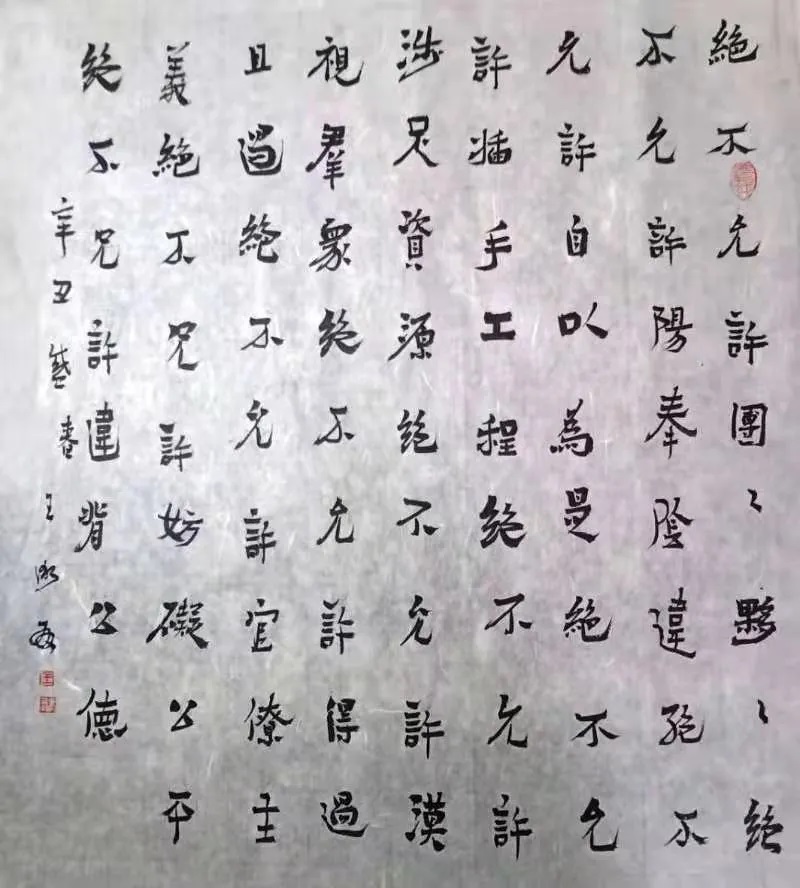 絶不允許團〻夥〻絶
不允許陽奉陰違絶不
允許自以為是絶不允
許插手工程絶不允許
涉足資源絶不允許漠
視羣衆絶不允許得過
且過絶不允許官僚主
義絶不允許妨礙公平
絶不允許違背公德
辛丑盛春 王